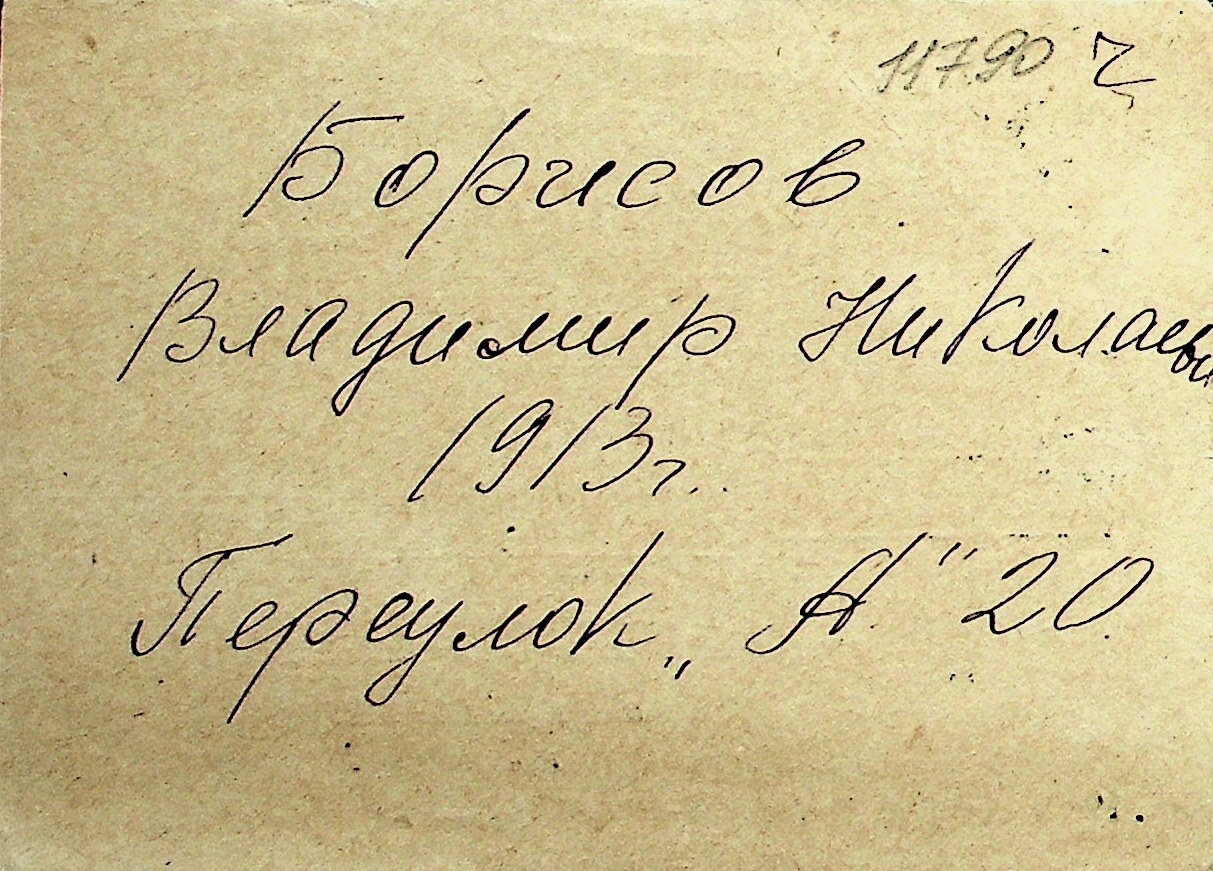 11790 г
Борисов
Владимир Николаевич
1913 г.
Переулок „А" 20